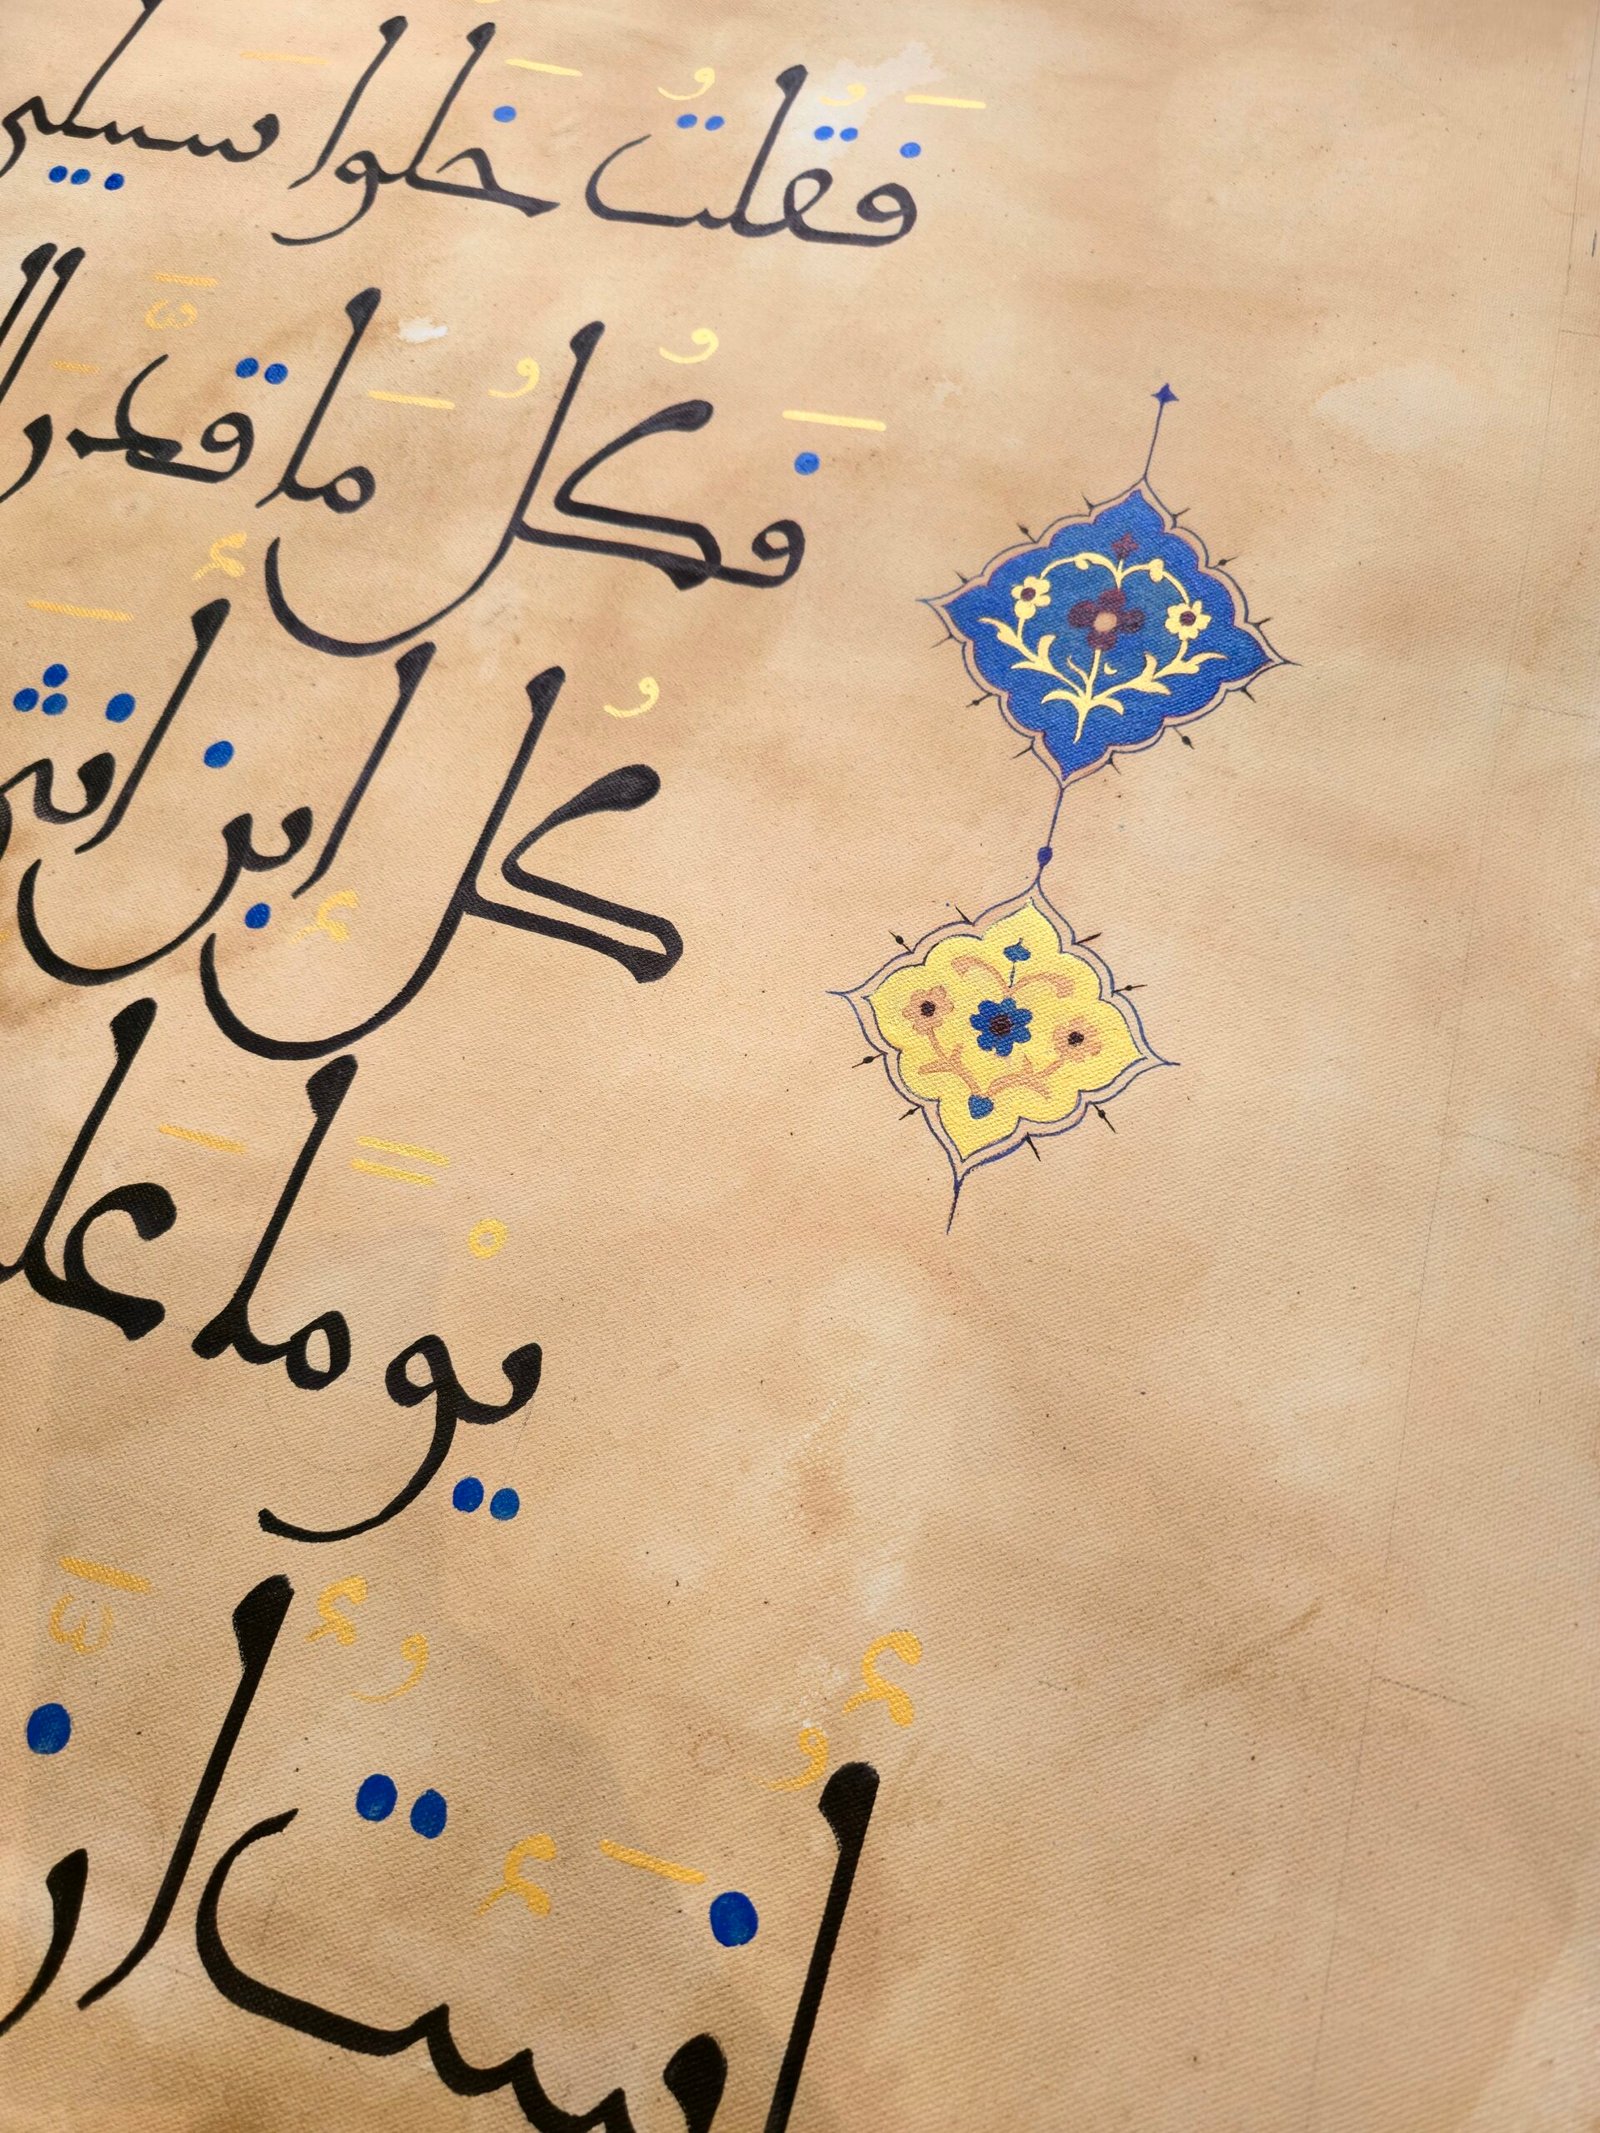 فَقُلتُ خَلوا سبيلي
فَكُلُ مَا قَدَّر
كُل ابن أنثى
يوْماً
أُنبئتُ أنَّ